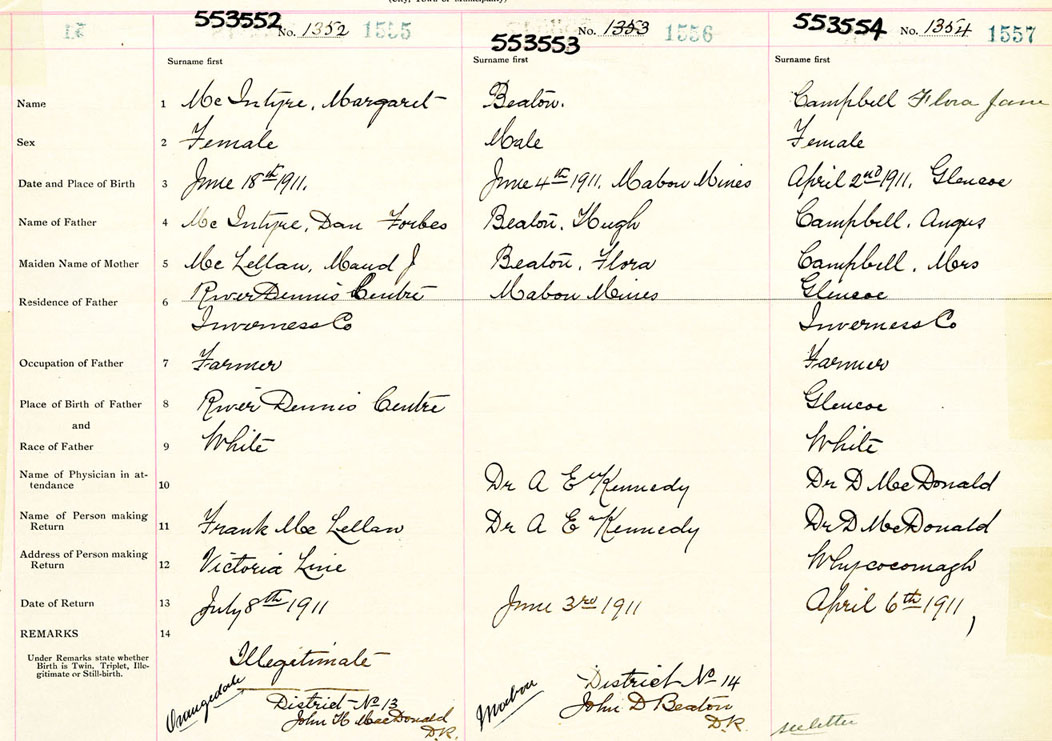 (City, Town or Municipality)
553552 No. 1352 1555 553553 No. 1353 1556 553554 No. 1354 1557
Surname first Surname first Surname first
Name 1 Mc Intyre, Margaret Beaton. Campbell Flora Jane
Sex 2 Female Male Female
Date and Place of Birth 3 June 18th 1911. June 4th 1911. Mabou Mines April 2nd 1911. Glencoe
Name of Father 4 Mc Intyre, Dan Forbes Beaton, Hugh Campbell, Angus
Maiden Name of Mother 5 Mc Lellan, Maud J Beaton, Flora Campbell, Mrs
Residence of Father 6 River Dennis Centre Mabou Mines Glencoe
Inverness Co Inverness Co
Occupation of Father 7 Farmer Farmer
Place of Birth of Father 8 River Dennis Centre Glencoe
and
Race of Father 9 White White
Name of Physician in attendance 10 Dr A E Kennedy Dr D MacDonald
Name of Person making Return 11 Frank Mc Lellan Dr A E Kennedy Dr D McDonald
Address of Person making Return 12 Victoria Line Whycocomagh
Date of Return 13 July 8th 1911 June 3rd 1911 April 6th 1911,
REMARKS 14
Under Remarks state whether Birth is Twin, Triplet, Illegitimate or Still-birth.
Illegitimate
Orangedale District No 13 Mabou District No 14
John H MacDonald John D Beaton
D.R. D.R. see letter